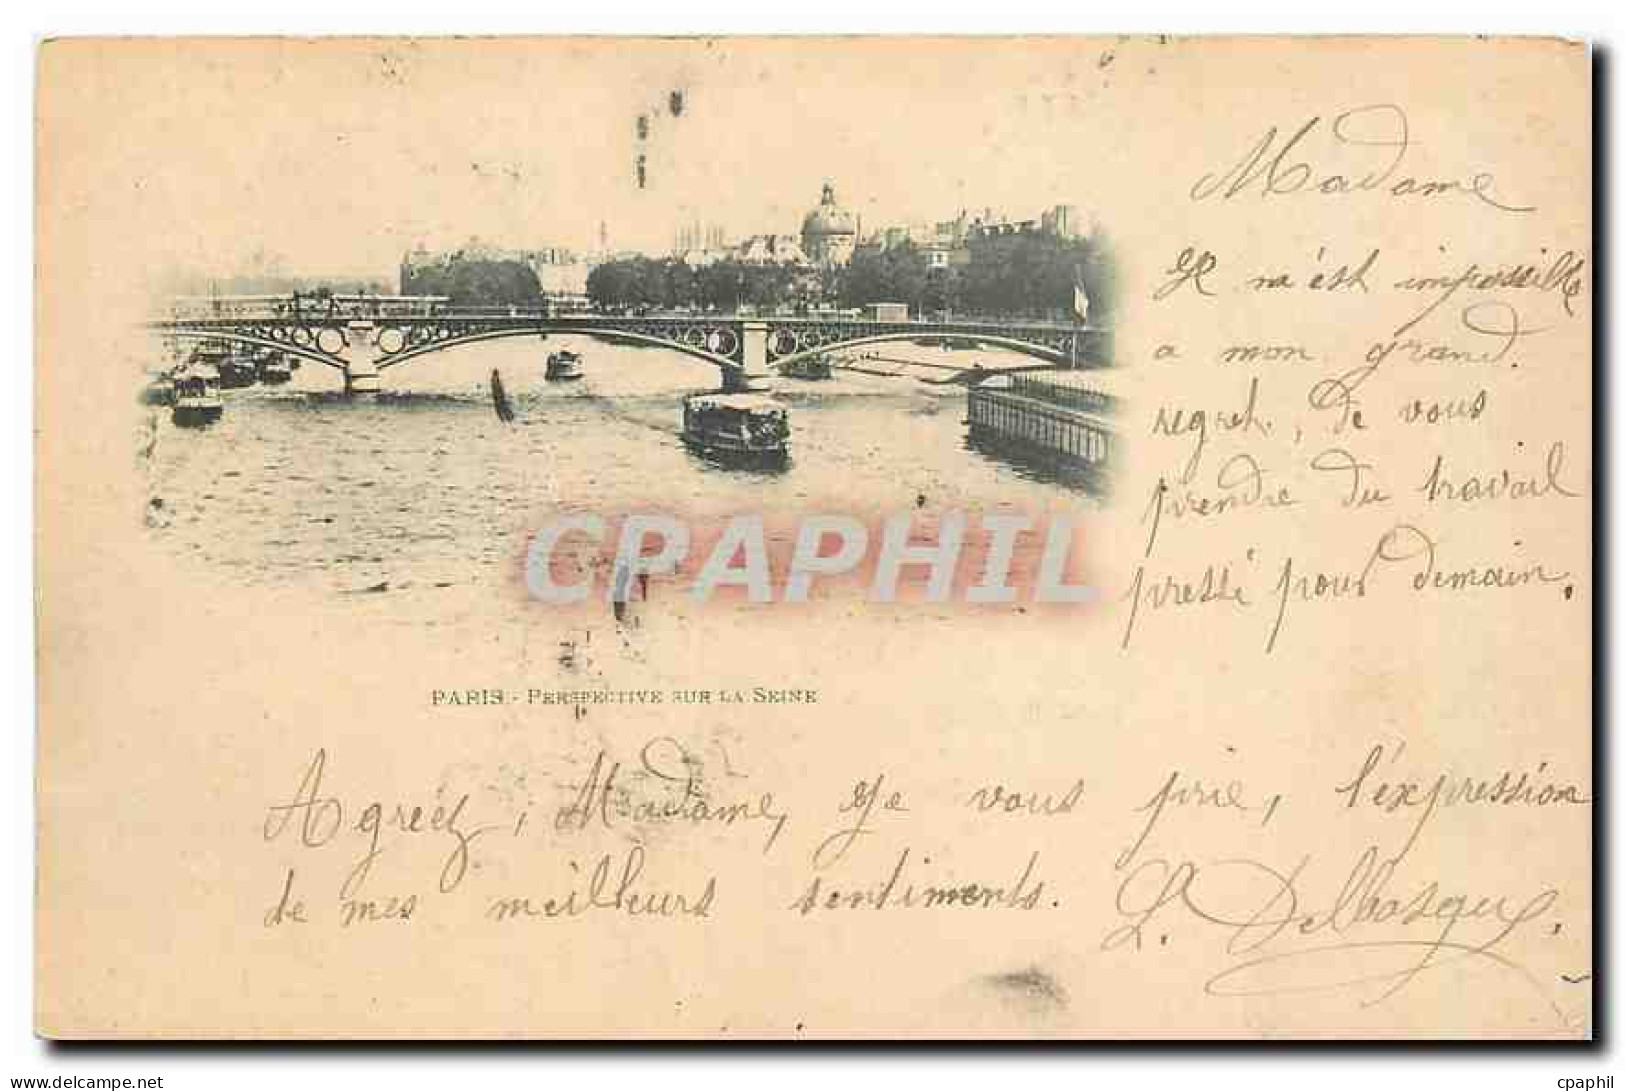 Madame
Il m'est impossible
a mon grand
regret, de vous
prendre du travail
pressé pour demain,
CPAPHIL
PARIS - PERSPECTIVE SUR LA SEINE
Agréez, Madame, Je vous prie, l'expression
de mes meilleurs sentiments. L. Delbosque.
www.delcampe.net
cpaphil